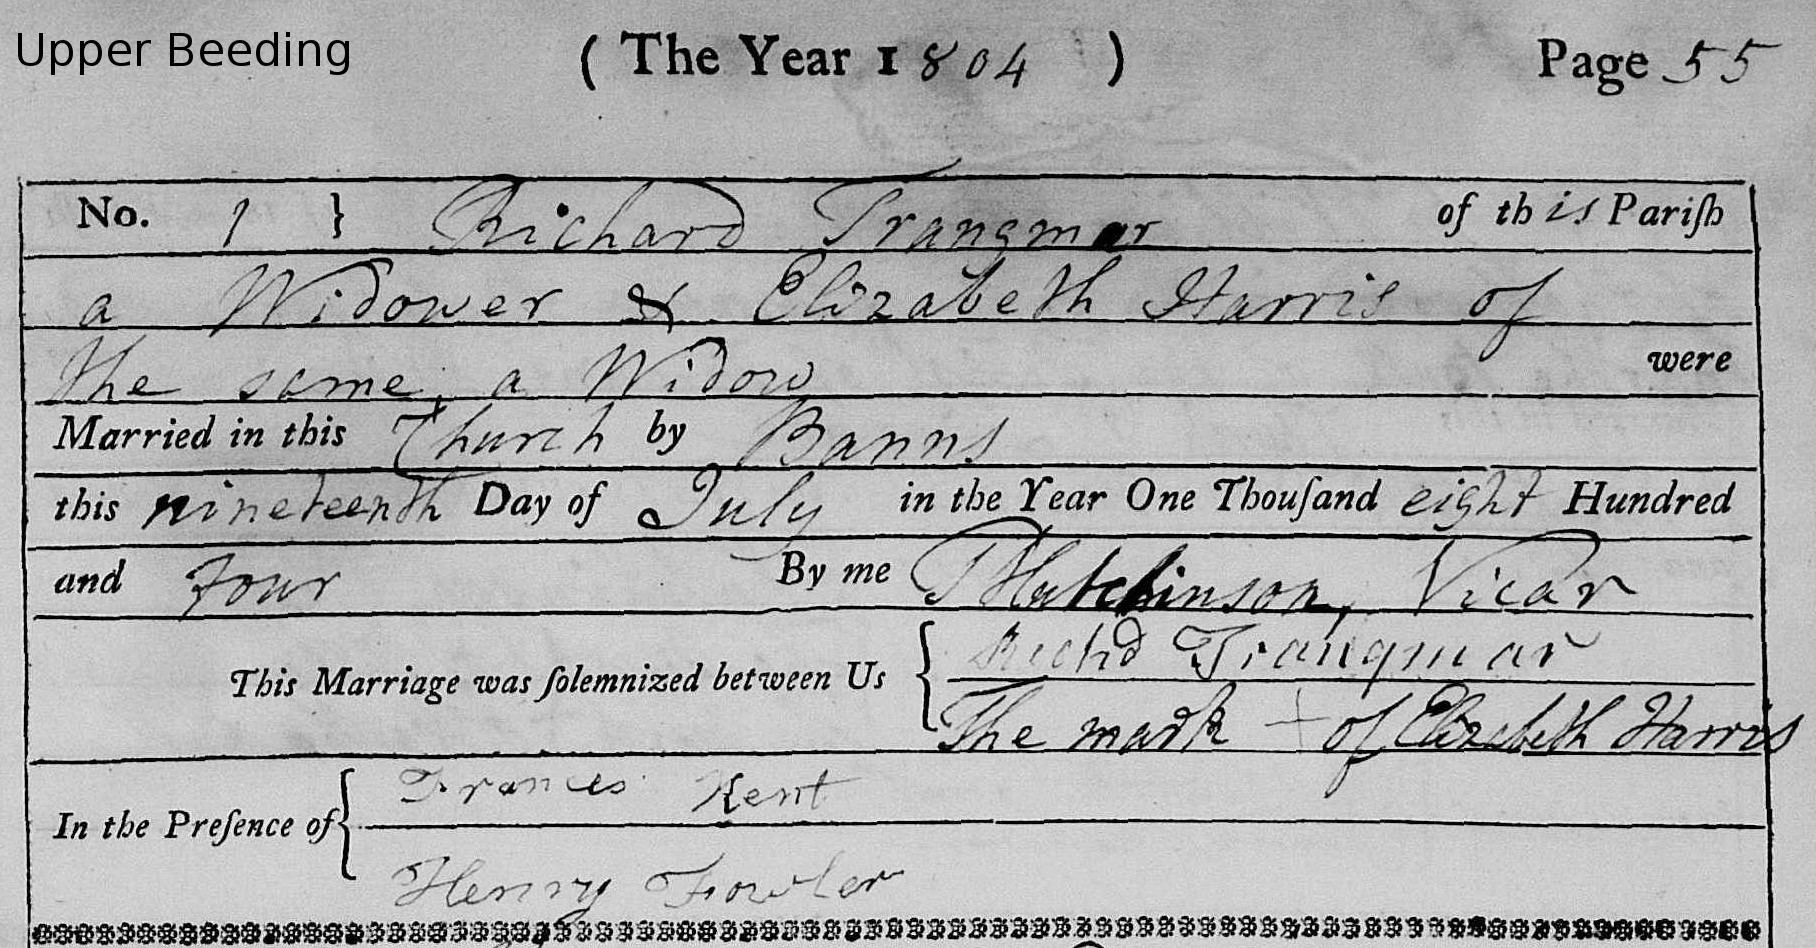 Upper Beeding
( The Year 1804 ) Page 55
No. 1 } Richard Trangmar of this Pariſh
a Widower & Elizabeth Harris of
the same, a Widow were
Married in this Church by Banns
this nineteenth Day of July in the Year One Thouſand eight Hundred
and four By me T Hutchinson, Vicar
This Marriage was ſolemnized between Us { Richd Trangmar
The mark + of Elizabeth Harris
In the Preſence of { Frances Kent
Henry Fowler